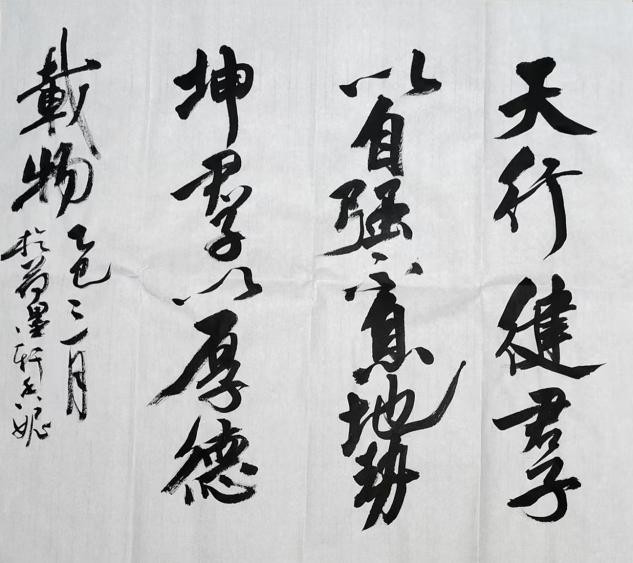 天行健君子
以自强不息地势
坤君子以厚德
載物
乙巳三月
於荷墨轩